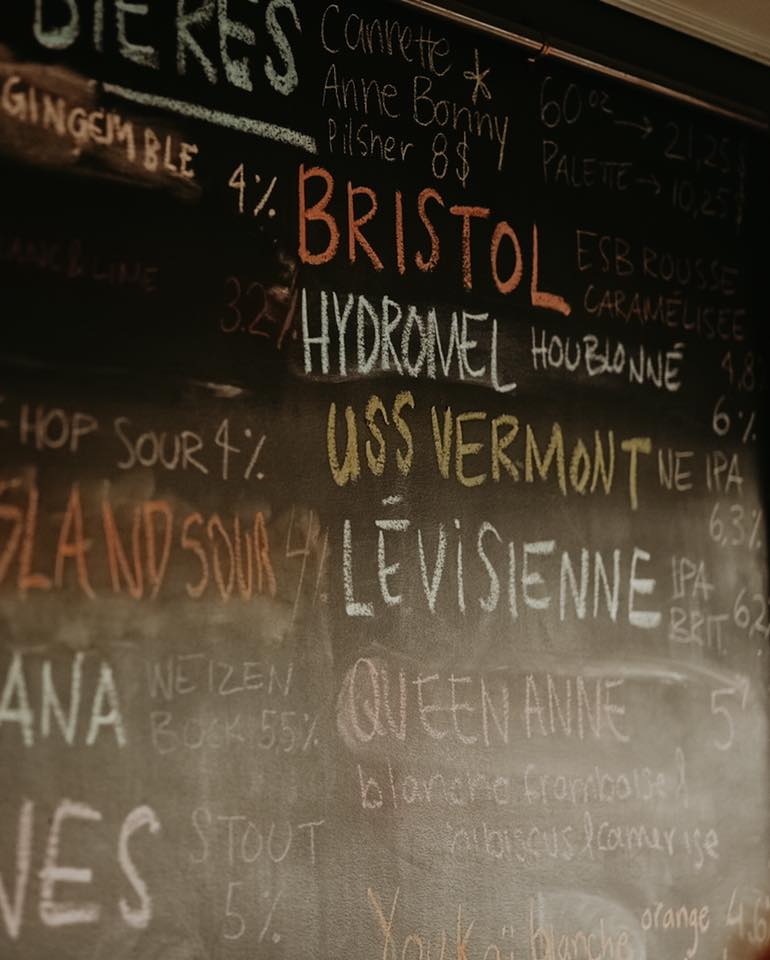 BIÈRES
GINGEMBLE
4%
3.2%
HOP SOUR 4%
SLAND SOUR 4%
ANA WEIZEN
BOCK 5.5%
STOUT
5%
Cannette *
Anne Bonny
Pilsner 8$
60oz → 21,25$
PALETTE → 10,25$
BRISTOL ESB ROUSSE
CARAMÉLISÉE
4,8
HYDROMEL HOUBLONNÉ
6%
USS VERMONT NE IPA
6,3%
LÉVISIENNE IPA
BRIT 6,2
QUEEN ANNE 5%
blanche framboise &
hibiscus & camerise
blanche orange 4.6